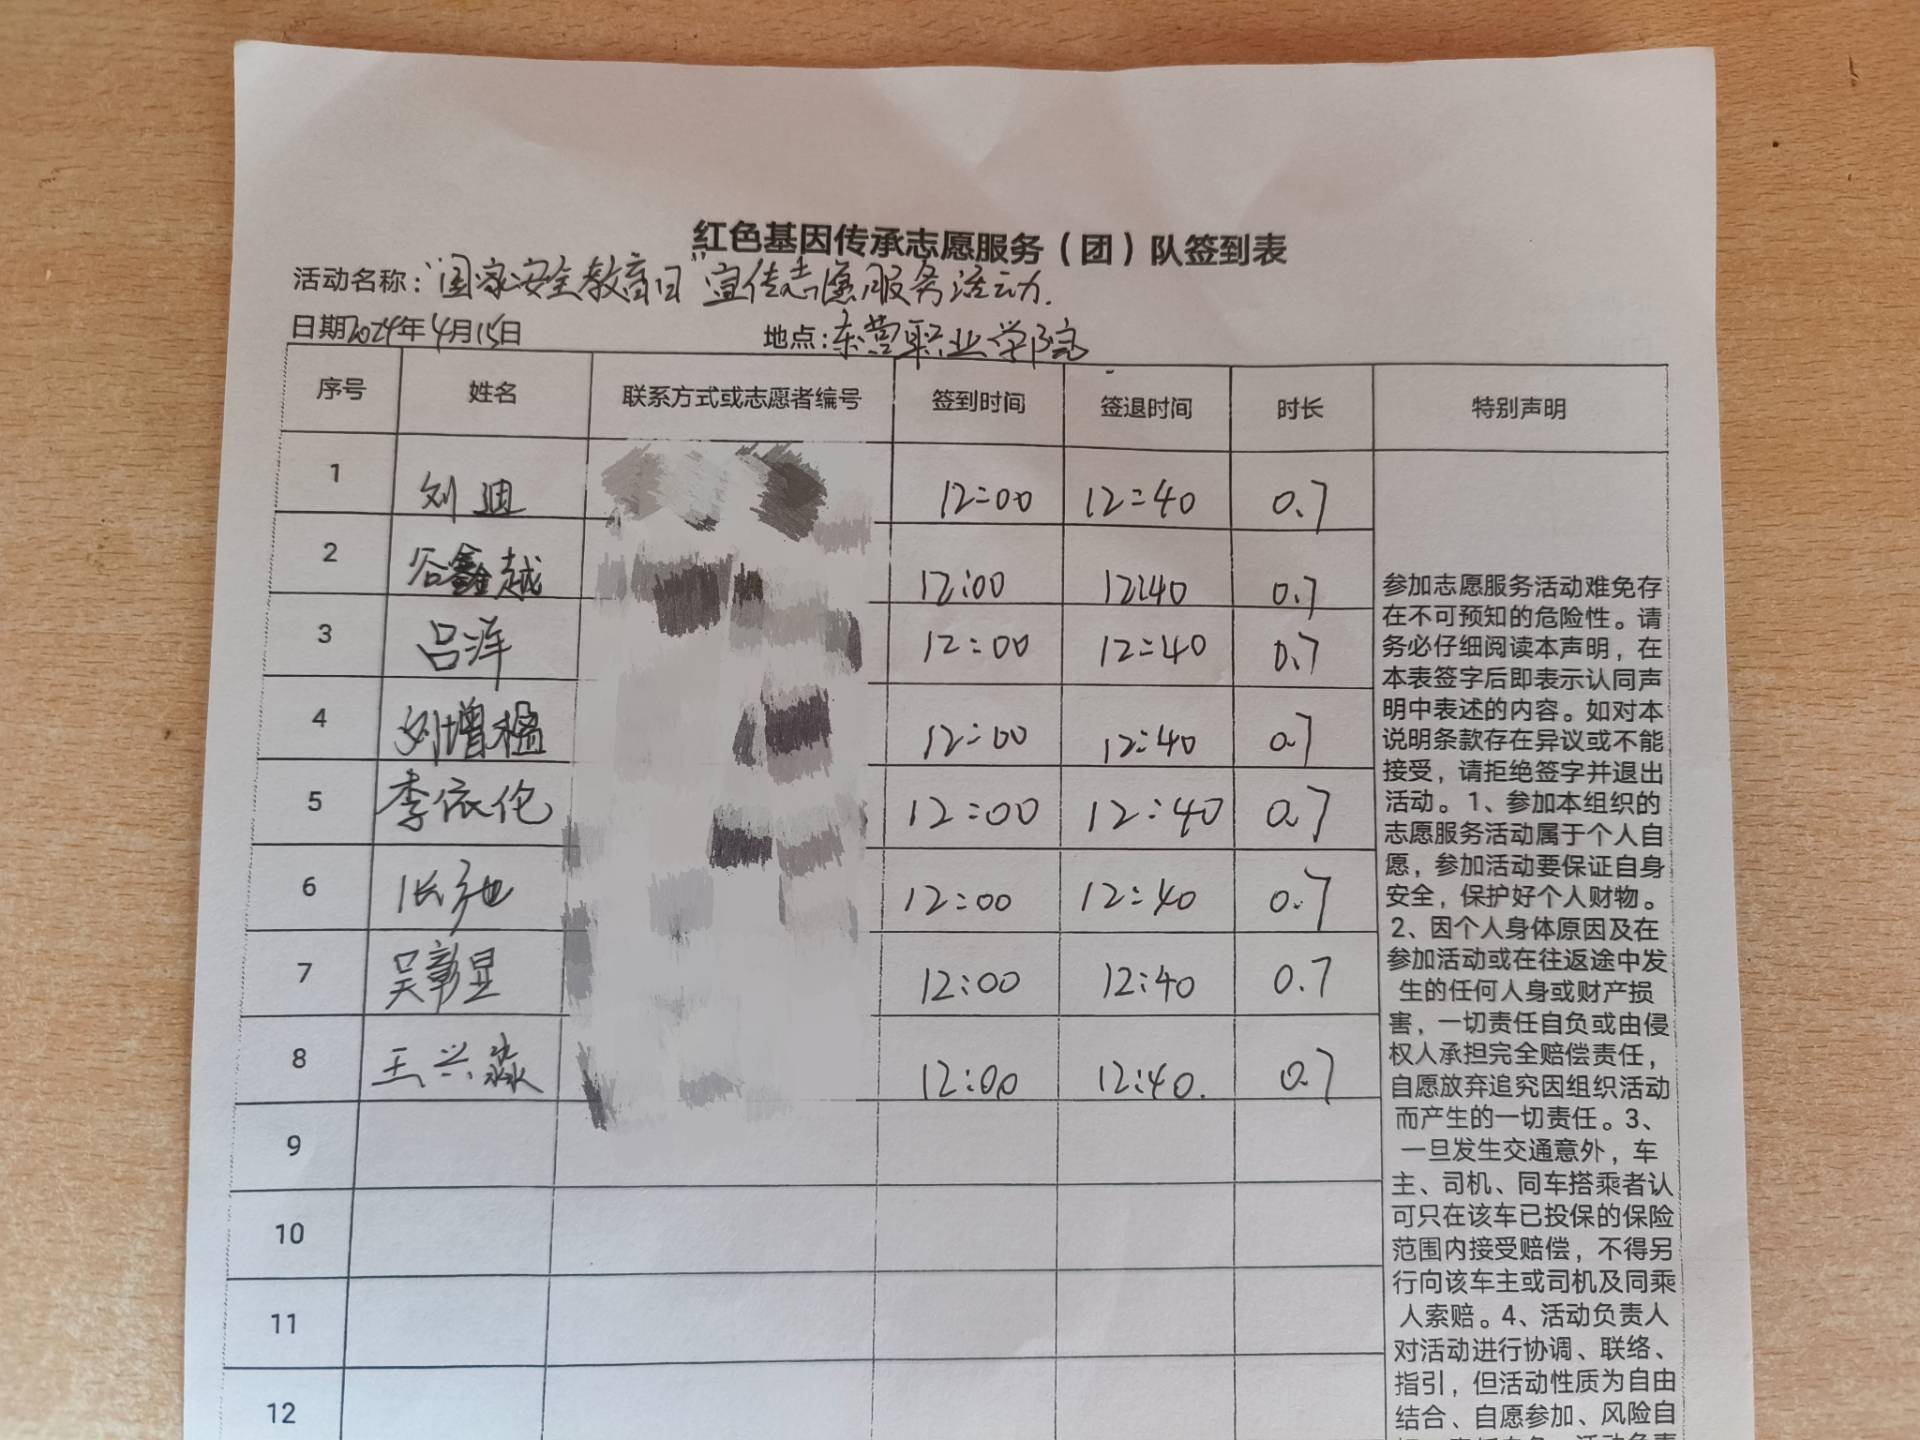 红色基因传承志愿服务（团）队签到表
活动名称：“国家安全教育日”宣传志愿服务活动.
日期2024年4月15日 地点：东营职业学院
序号 姓名 联系方式或志愿者编号 签到时间 签退时间 时长 特别声明
1 刘 12:00 12:40 0.7
2 谷鑫越 12:00 12:40 0.7
3 吕洋 12:00 12:40 0.7
4 刘增楹 12:00 12:40 0.7
5 李依伦 12:00 12:40 0.7
6 张弛 12:00 12:40 0.7
7 吴彰显 12:00 12:40 0.7
8 王兴淼 12:00 12:40. 0.7
9
10
11
12
参加志愿服务活动难免存
在不可预知的危险性。请
务必仔细阅读本声明，在
本表签字后即表示认同声
明中表述的内容。如对本
说明条款存在异议或不能
接受，请拒绝签字并退出
活动。1、参加本组织的
志愿服务活动属于个人自
愿，参加活动要保证自身
安全，保护好个人财物。
2、因个人身体原因及在
参加活动或在往返途中发
生的任何人身或财产损
害，一切责任自负或由侵
权人承担完全赔偿责任，
自愿放弃追究因组织活动
而产生的一切责任。3、
一旦发生交通意外，车
主、司机、同车搭乘者认
可只在该车已投保的保险
范围内接受赔偿，不得另
行向该车主或司机及同乘
人索赔。4、活动负责人
对活动进行协调、联络、
指引，但活动性质为自由
结合、自愿参加、风险自